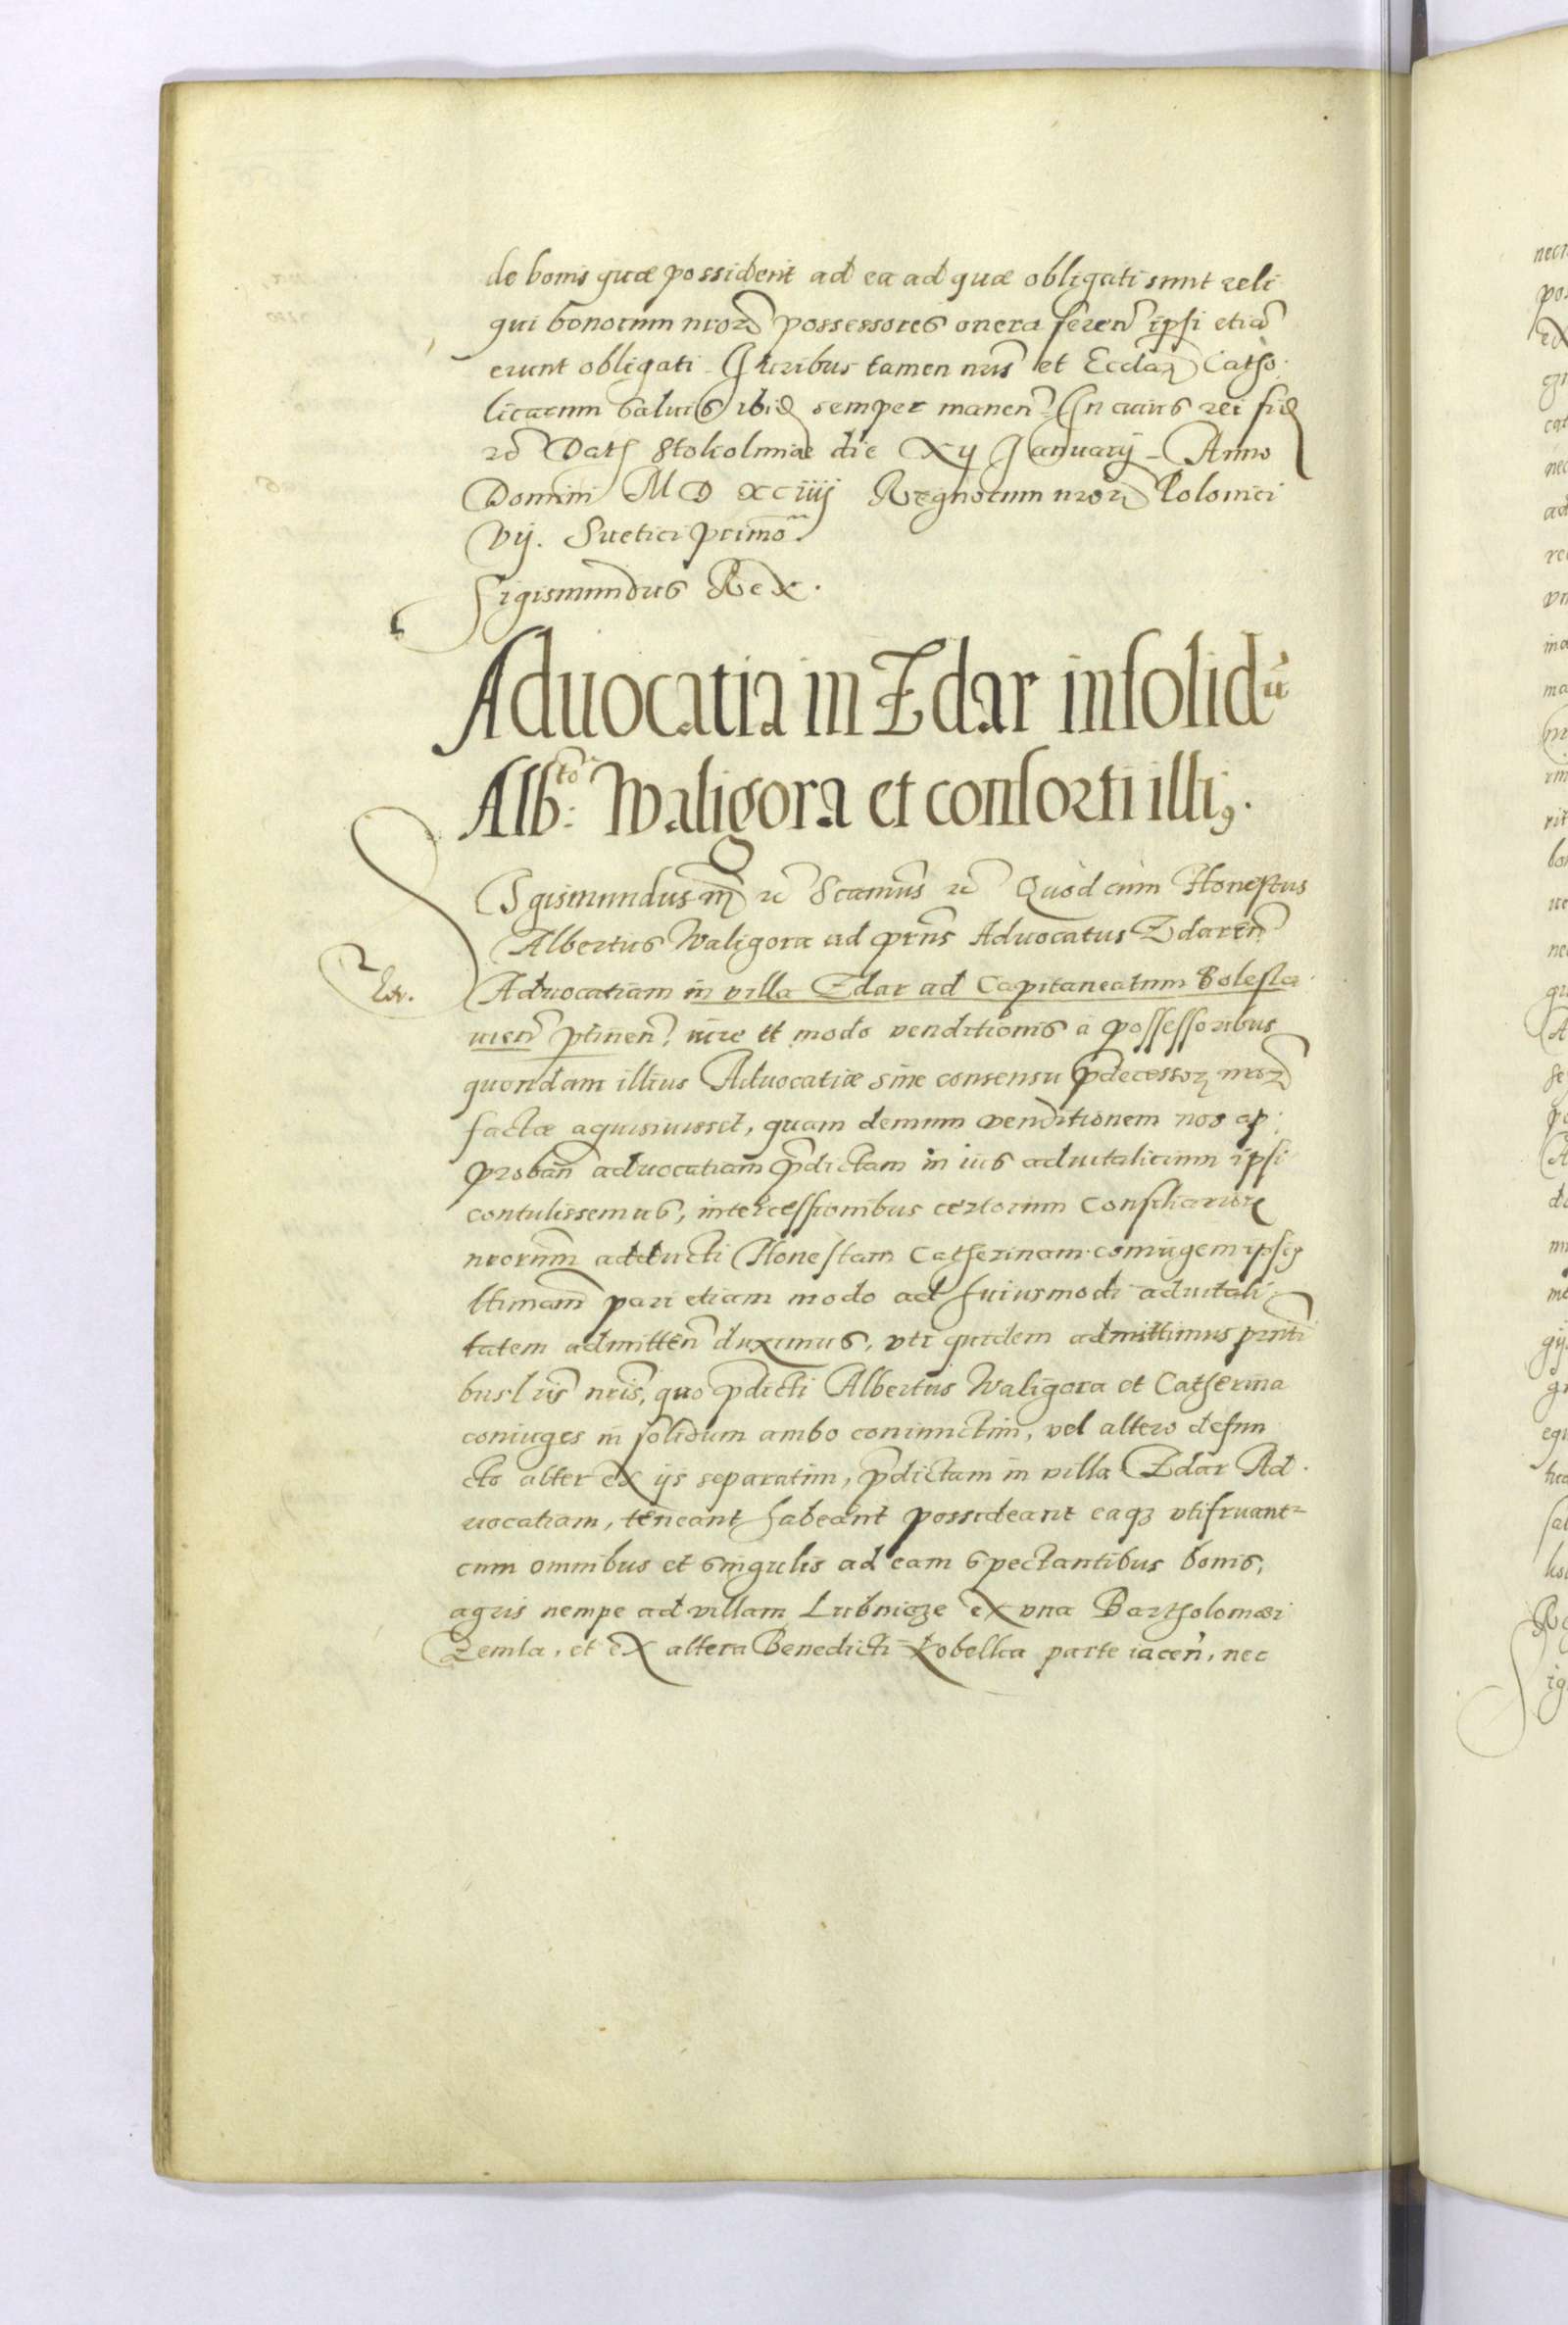 de bonis quæ possident ad ea ad quæ obligati sunt reli
qui bonorum nrōrū possessores onera feren̄ ipsi etiā
erunt obligati. Juribus tamen nrīs et Eccl̄ar̄ Catho-
licarum saluis ibid̄ semper manen̄. In cuius rei fid̄
rc̄ Dat̄ Stokolmiae die xij January Anno
Domini M D xciiij Regnorum nrōr̄ Polonici
vij. Suetici primo.
Sigismundus Rex.
Aduocatia in Zdar insolidū
Alb:to Waligora et consorti illi9.
Sigismundus m̄ rc̄ Scamus rc̄ Quòd cùm Honestus
Albertus Waligora ad prn̄s Aduocatus Zdaren̄
Aduocatiam in villa Zdar ad Capitaneatum Bolesla-
uien̄ ptinen̄, iure et modo venditionis à possessoribus
quondam illius Aduocatiæ sine consensu prædecessor̄ nrōr̄
factæ aquisiuisset, quam demum venditionem nos ap-
proban̄ aduocatiam prædictam in ius aduitalicium ipsi
contulissemus, intercessionibus certorum Consiliarior̄
nrōrum adducti Honestam Catherinam coniugem ipsi9
ltimam̄ pari etiam modo ad huiusmodi aduitali-
tatem admitten̄ duximus, vti quidem admittimus prn̄ti
bus lr̄is nrīs, quo prædicti Albertus Waligora et Catherina
coniuges in solidum ambo coniunctim, vel altero defun
cto alter ex ijs separatim, prædictam in villa Zdar Ad-
uocatiam, teneant habeant possideant eaq3 vtifruant2
cum omnibus et singulis ad eam spectantibus bonis,
agris nempe ad villam Lubnicze ex vna Bartholomæi
Zemla, et ex altera Benedicti Kobelka parte iacen̄, nec